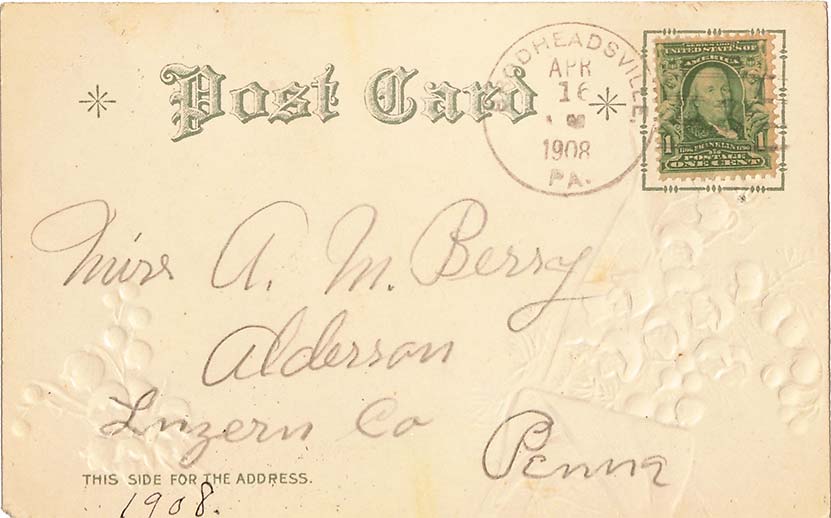 Post Card
BRODHEADSVILLE
APR
16
1908
PA.
SERIES 1902
UNITED STATES OF
AMERICA
1 FRANKLIN 1
POSTAGE
ONE CENT
Miss A. M. Berry
Alderson
Luzern Co
Penna
THIS SIDE FOR THE ADDRESS.
1908.